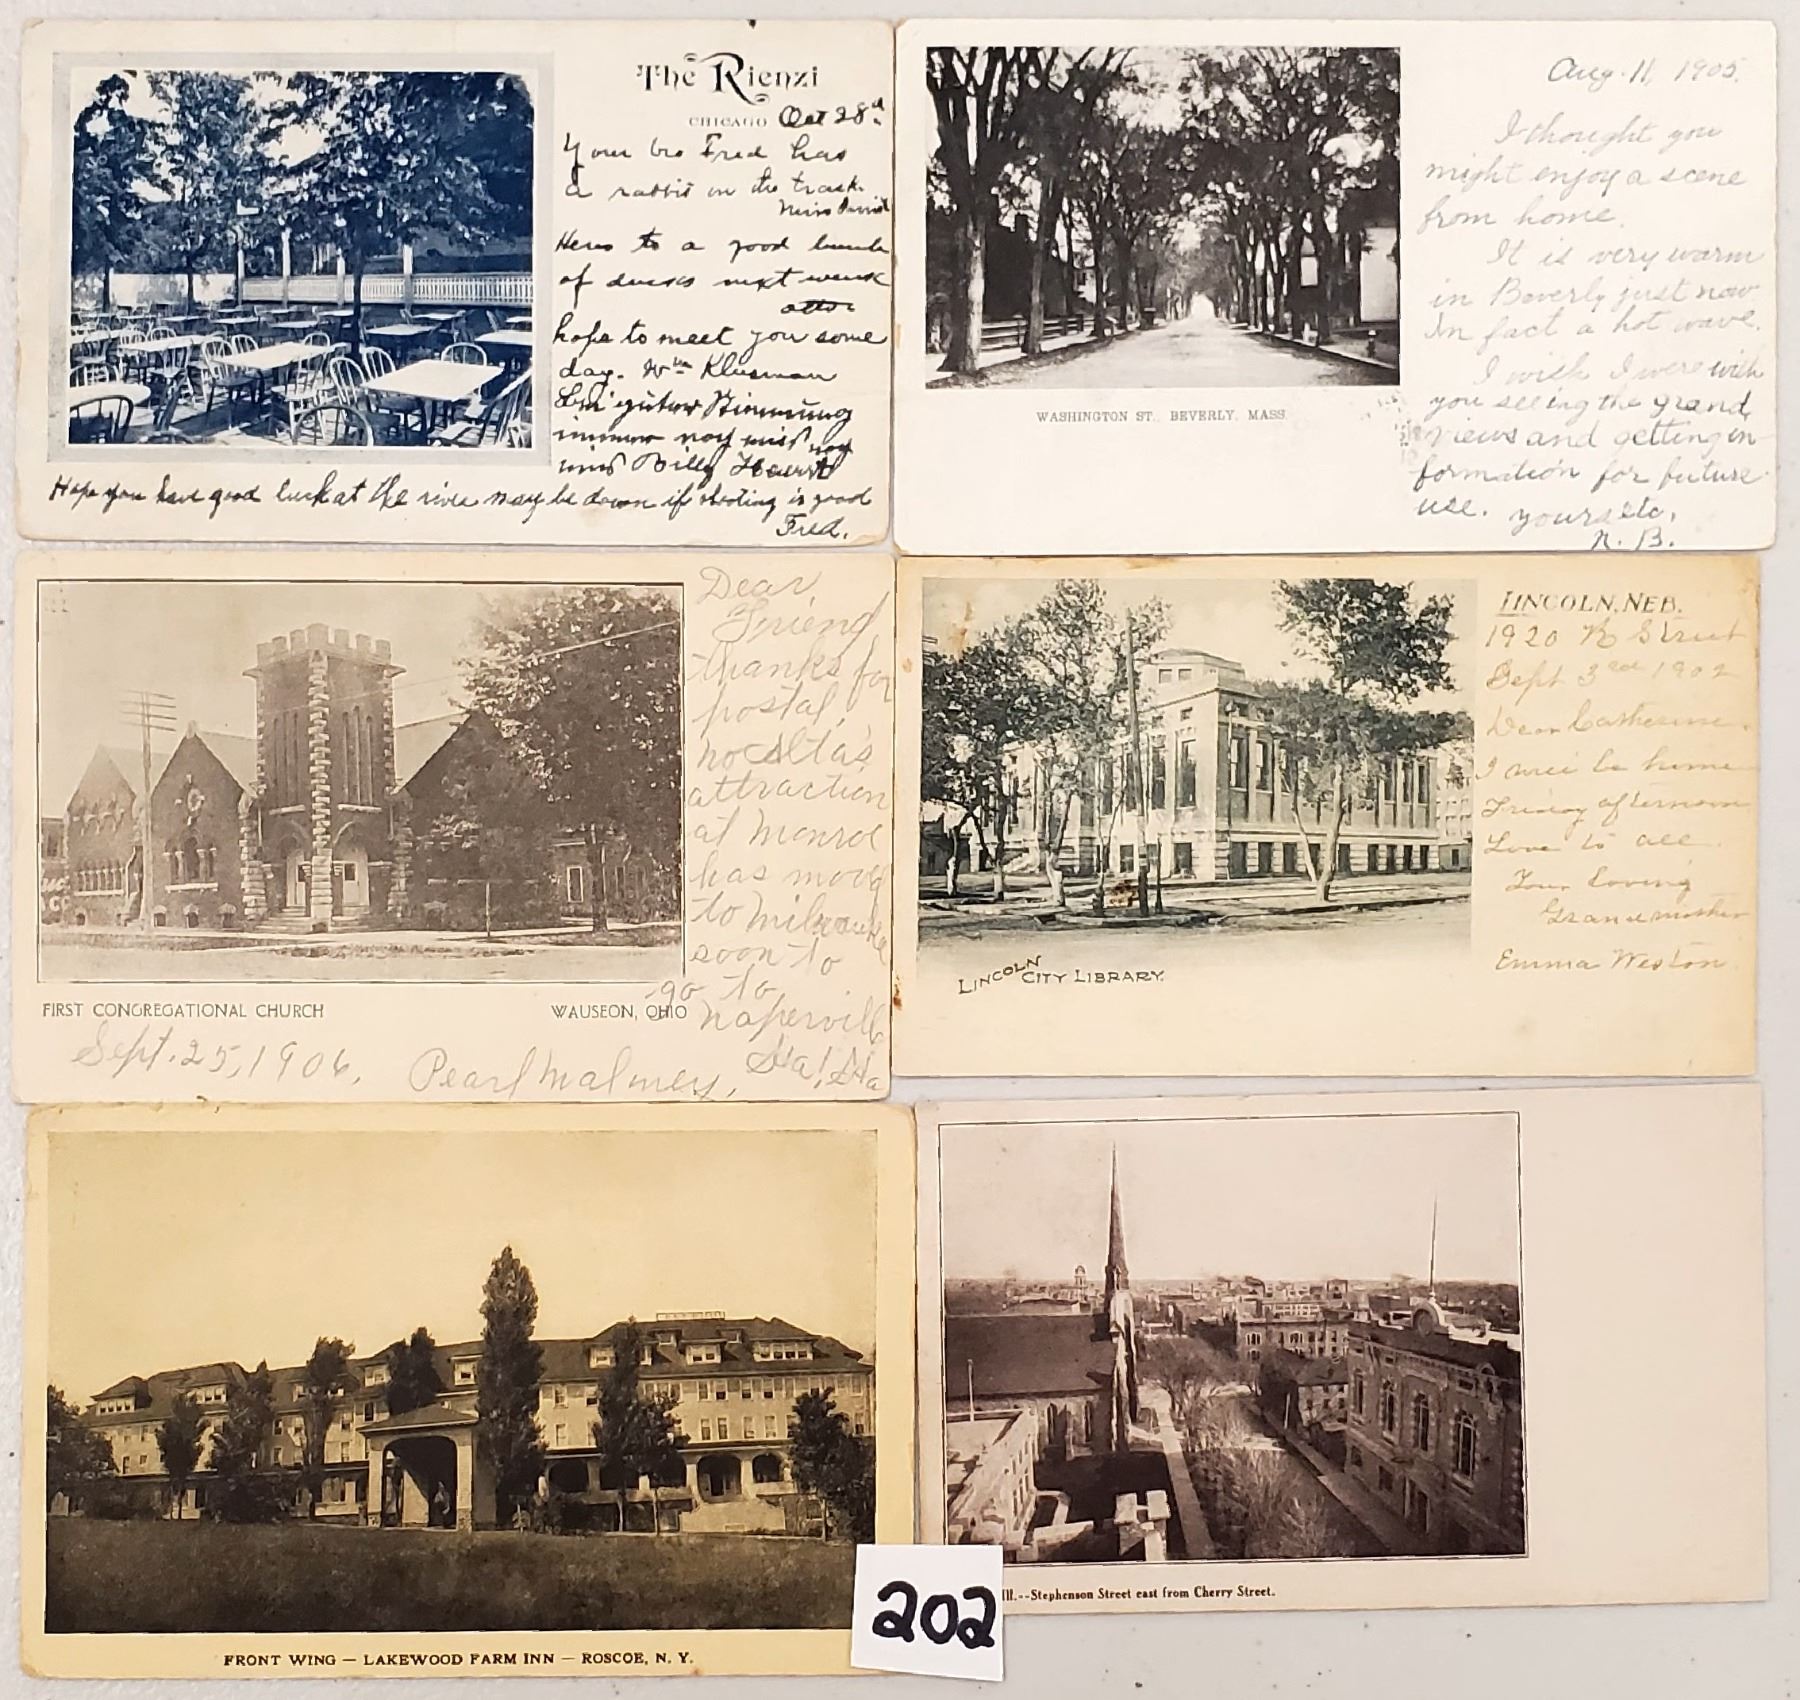 The Rienzi
CHICAGO Oct 28d
Your bro Fred has
a rabbit on the track.
Heres to a good bunch
of ducks next week
hope to meet you some
day. Wm Klusman
immer noy miss noy
miss Billy
Hope you have good luck at the river may be down if shooting is good
Fred.
Aug. 11, 1905.
I thought you
might enjoy a scene
from home.
It is very warm
in Beverly just now
In fact a hot wave.
I wish I were with
you seeing the grand
views and getting in-
formation for future
use. yours etc,
N. B.
WASHINGTON ST., BEVERLY, MASS.
Dear,
Friend,
thanks for
postal,
no Alta's
attraction
at Monroe
has moved
to Milwaukee
soon to
go to
Naperville
Ha! Ha
FIRST CONGREGATIONAL CHURCH WAUSEON, OHIO
Sept. 25, 1906. Pearl Malmey.
LINCOLN, NEB.
1920 R Street
Sept 3rd 1902
Dear Catherine.
I will be home
Friday afternoon
Love to all.
Your Loving
Grandmother
Emma Weston
LINCOLN CITY LIBRARY.
FRONT WING — LAKEWOOD FARM INN — ROSCOE, N. Y.
202
Ill.--Stephenson Street east from Cherry Street.